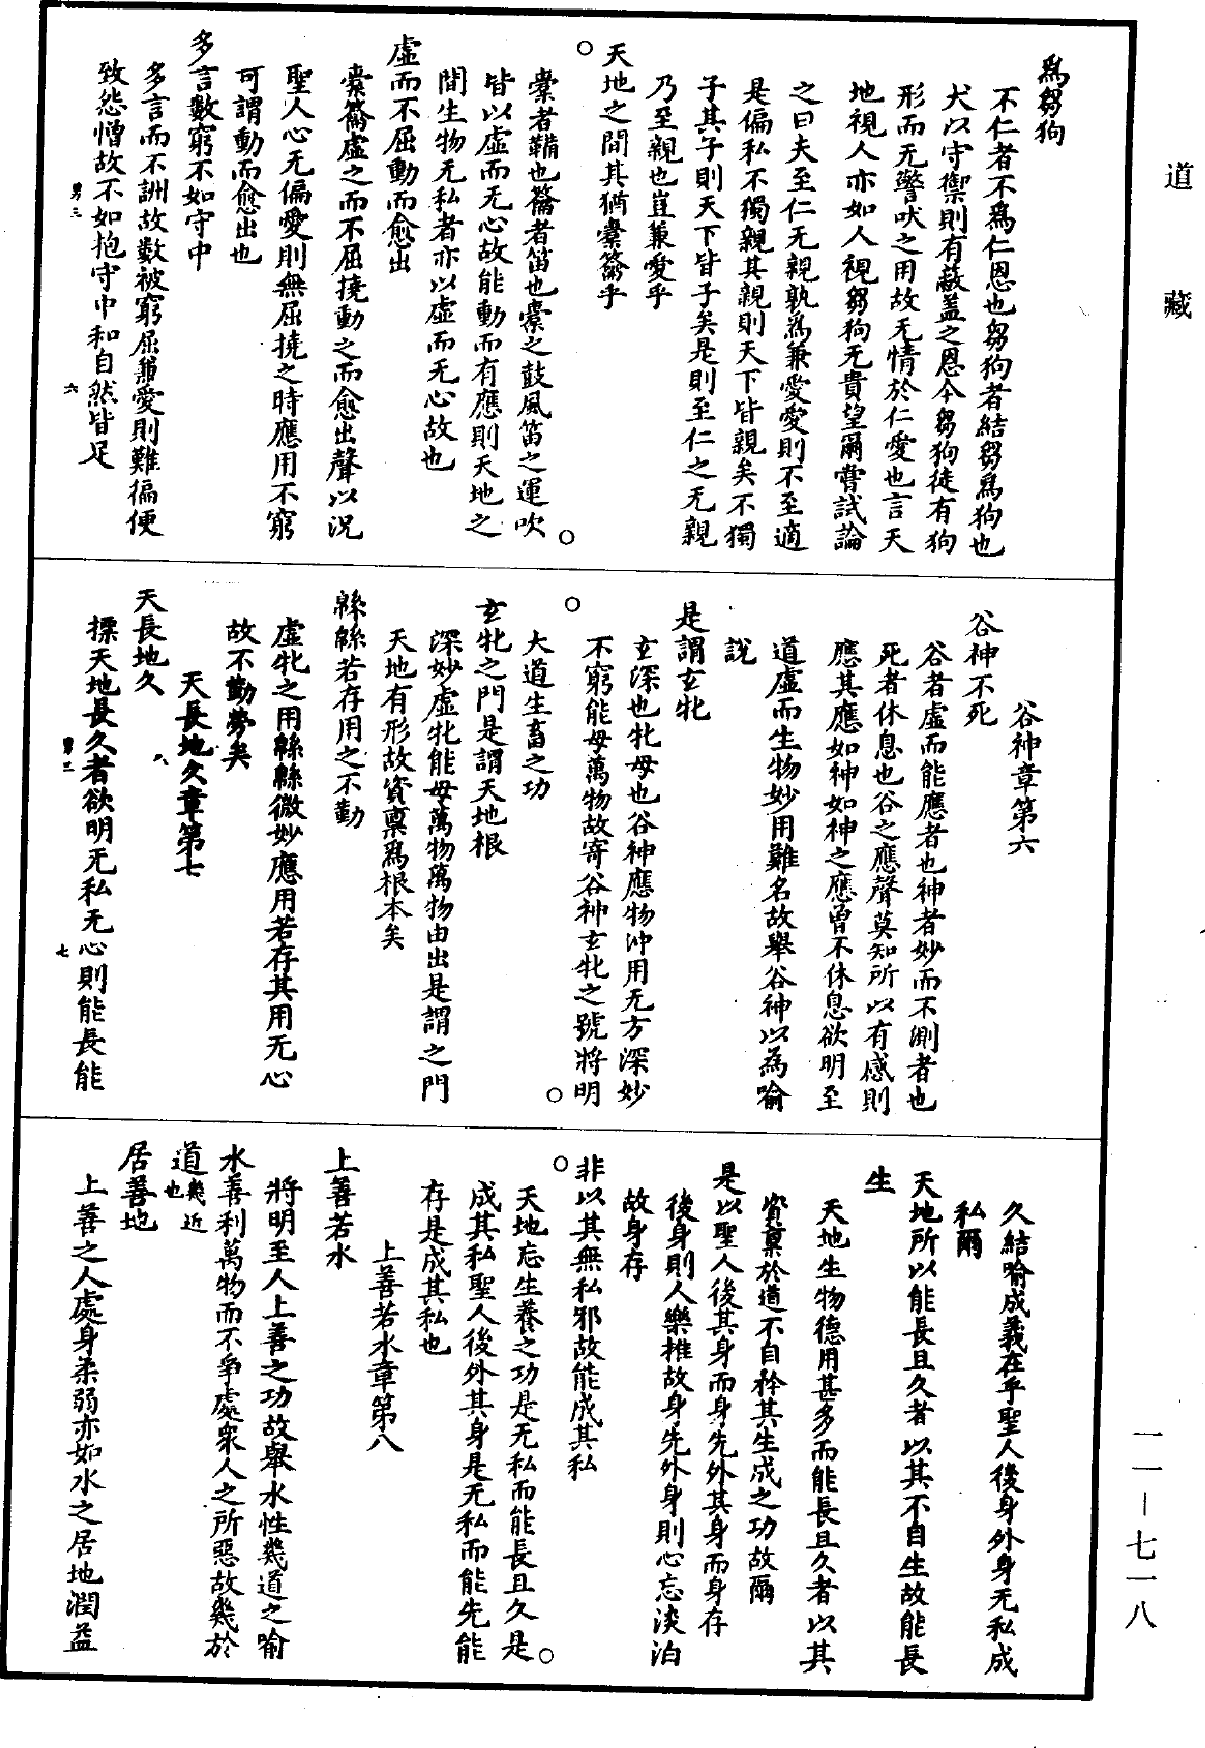 道藏
爲芻狗
不仁者不爲仁恩也芻狗者結芻爲狗也
犬以守禦則有蔽盖之恩今芻狗徒有狗
形而无警吠之用故无情於仁愛也言天
地視人亦如人視芻狗无貴望爾嘗試論
之曰夫至仁无親孰爲兼愛愛則不至適
是偏私不獨親其親則天下皆親矣不獨
子其子則天下皆子矣是則至仁之无親
乃至親也豈兼愛乎
天地之間其猶橐籥乎
橐者韛也籥者笛也橐之鼓風笛之運吹
皆以虛而无心故能動而有應則天地之
間生物无私者亦以虛而无心故也
虛而不屈動而愈出
橐籥虛之而不屈撓動之而愈出聲以況
聖人心无偏愛則無屈撓之時應用不窮
可謂動而愈出也
多言數窮不如守中
多言而不詶故數被窮屈兼愛則難徧便
致怨憎故不如抱守中和自然皆足
六
谷神章第六
谷神不死
谷者虛而能應者也神者妙而不測者也
死者休息也谷之應聲莫知所以有感則
應其應如神如神之應曾不休息欲明至
道虛而生物妙用難名故舉谷神以為喻
說
是謂玄牝
玄深也牝母也谷神應物沖用无方深妙
不窮能母萬物故寄谷神玄牝之號將明
大道生畜之功
玄牝之門是謂天地根
深妙虛牝能母萬物萬物由出是謂之門
天地有形故資稟爲根本矣
緜緜若存用之不勤
虛牝之用緜緜微妙應用若存其用无心
故不勤勞矣
天長地久章第七
天長地久
標天地長久者欲明无私无心則能長能
七
久結喻成義在乎聖人後身外身无私成
私爾
天地所以能長且久者以其不自生故能長
生
天地生物德用甚多而能長且久者以其
資稟於道不自矜其生成之功故爾
是以聖人後其身而身先外其身而身存
後身則人樂推故身先外身則心忘淡泊
故身存
非以其無私邪故能成其私
天地忘生養之功是无私而能長且久是
成其私聖人後外其身是无私而能先能
存是成其私也
上善若水章第八
上善若水
將明至人上善之功故舉水性幾道之喻
水善利萬物而不爭處衆人之所惡故幾於
道幾近也
居善地
上善之人處身柔弱亦如水之居地潤益
一一—七一八